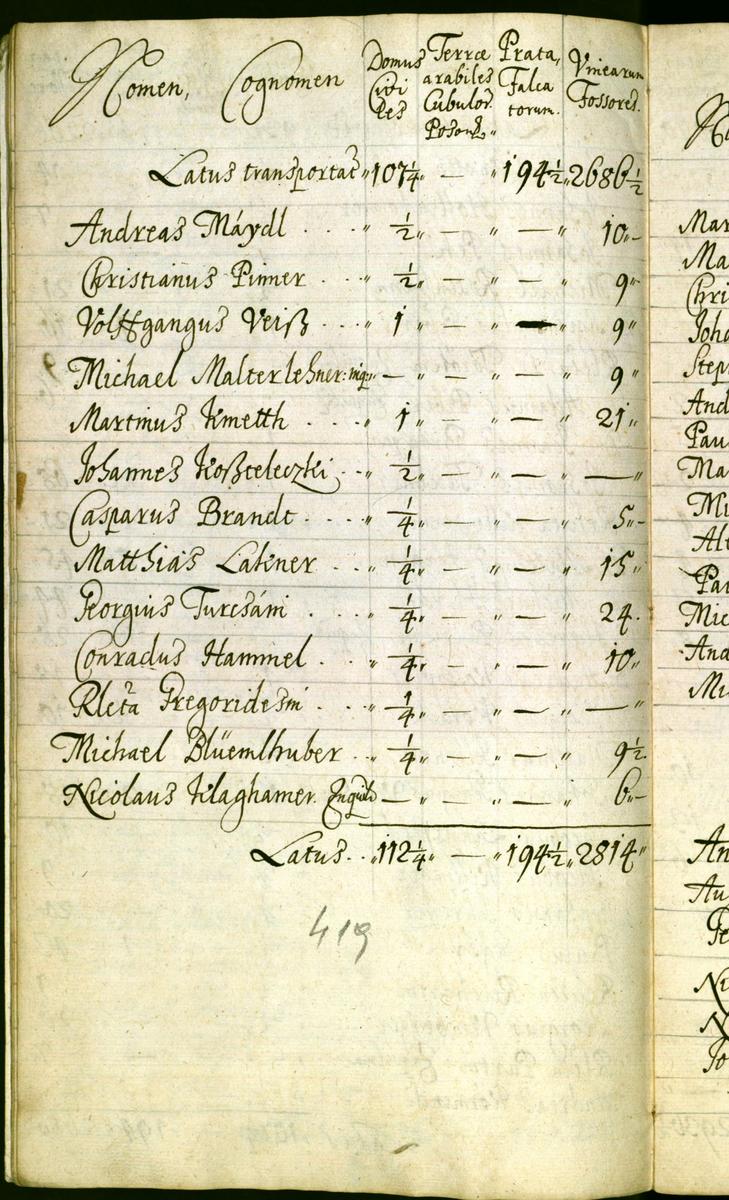 Nomen, Cognomen Domus Civiles Terræ arabiles Cubulor. Poson. Prata, Falcatorum. Vinearum Fossores.
Latus transportat 107 1/4 — 194 1/2 2686 1/2
Andreas Máydl . . . . 1/2 — — 10
Christianus Pinner . . . 1/2 — — 9
Volffgangus Veiß . . . . 1 — — 9
Michael Malterlehner: inq. — — — 9
Martinus Kmetth . . . . 1 — — 21
Johannes Koßteleczki . . 1/2 — — —
Casparus Brandt . . . . 1/4 — — 5
Matthias Lakner . . . . 1/4 — — 15
Georgius Turcsáni . . . . 1/4 — — 24.
Conradus Hammel . . . . 1/4 — — 10
Rlcta Gregoridesin . . . 1/4 — — —
Michael Blüemlhuber . . 1/4 — — 9 1/2
Nicolaus Klaghamer. Inquil. — — — 6
Latus . . 112 1/4 — 194 1/2 2814
419
Mar
Ma
Chri
Joha
Step
And
Pau
Ma
Mi
Pau
Mic
And
Mi
An
Au
Ni
N
Jo